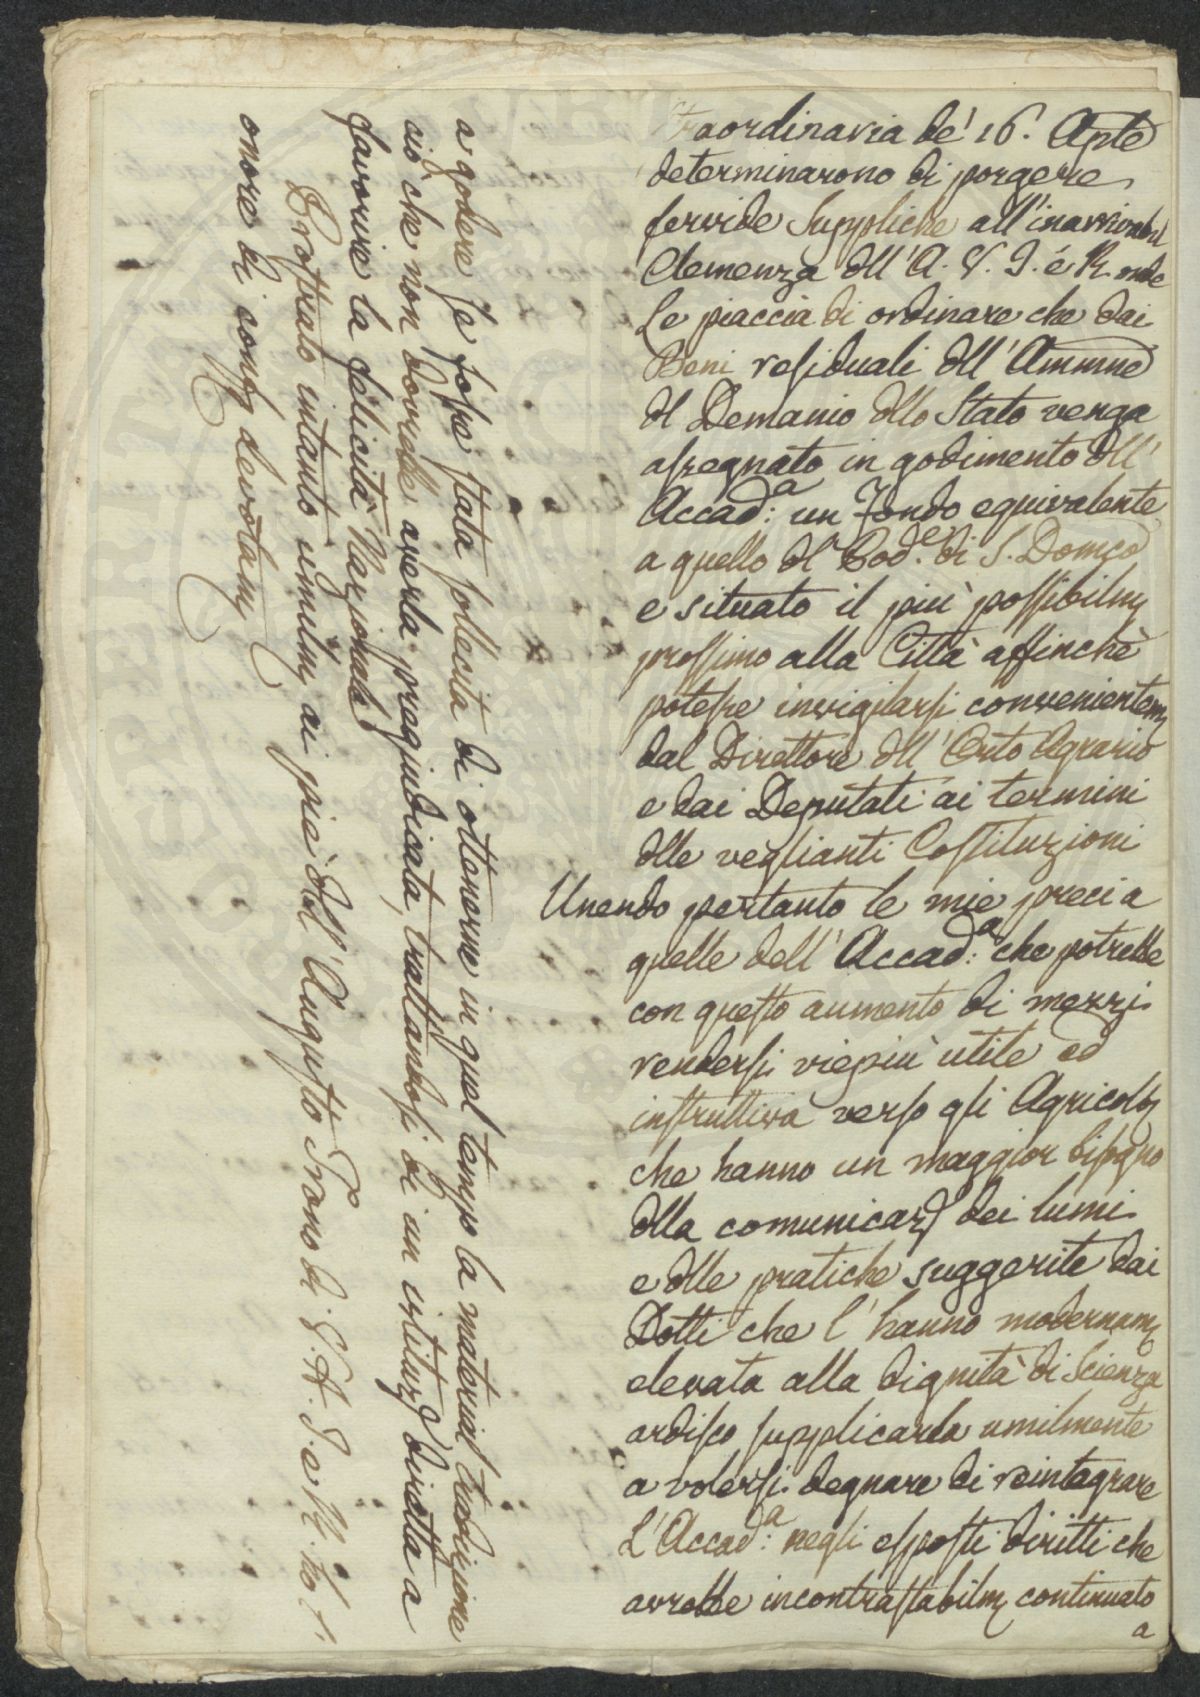 straordinaria de' 16. Aprle
determinarono di porgere
fervide Suppliche all'inarrivabil
Clemenza dll'A. V. I. e R. onde
Le piaccia di ordinare che dai
Beni residuali dll'Ammne
dl Demanio dllo Stato venga
assegnato in godimento dll'
Accad:a un Fondo equivalente
a quello dl Pod.e di S. Domco
e situato il più possibilm
prossimo alla Città affinchè
potesse invigilarsi convenientem
dal Direttore dll'Orto Agrario
e dai Deputati ai termini
dlle veglianti Costituzioni
Unendo pertanto le mie preci a
quelle dell'Accad:a che potrebbe
con questo aumento di mezzi
rendersi viepiù utile ed
instruttiva verso gli Agricolt
che hanno un maggior bisogno
dlla comunicaz dei lumi
e dlle pratiche suggerite dai
Dotti che l'hanno modernam
elevata alla dignità di Scienza
ardisco supplicarla umilmente
a volersi degnare di reintegrare
L'Accad:a negli esposti diritti che
avrebbe incontrastabilm continuato
a
a godere se fosse stata sollecita di ottenerne in quel tempo la material tradizione
ciò che non dovrebbe averla pregiudicata, trattandosi di un istituz diretta a
favorire la felicità Nazionale
Prostrato intanto umilm ai piè dll'Augusto Trono di V. A. I. e R. ho l'
onore di conf devotam